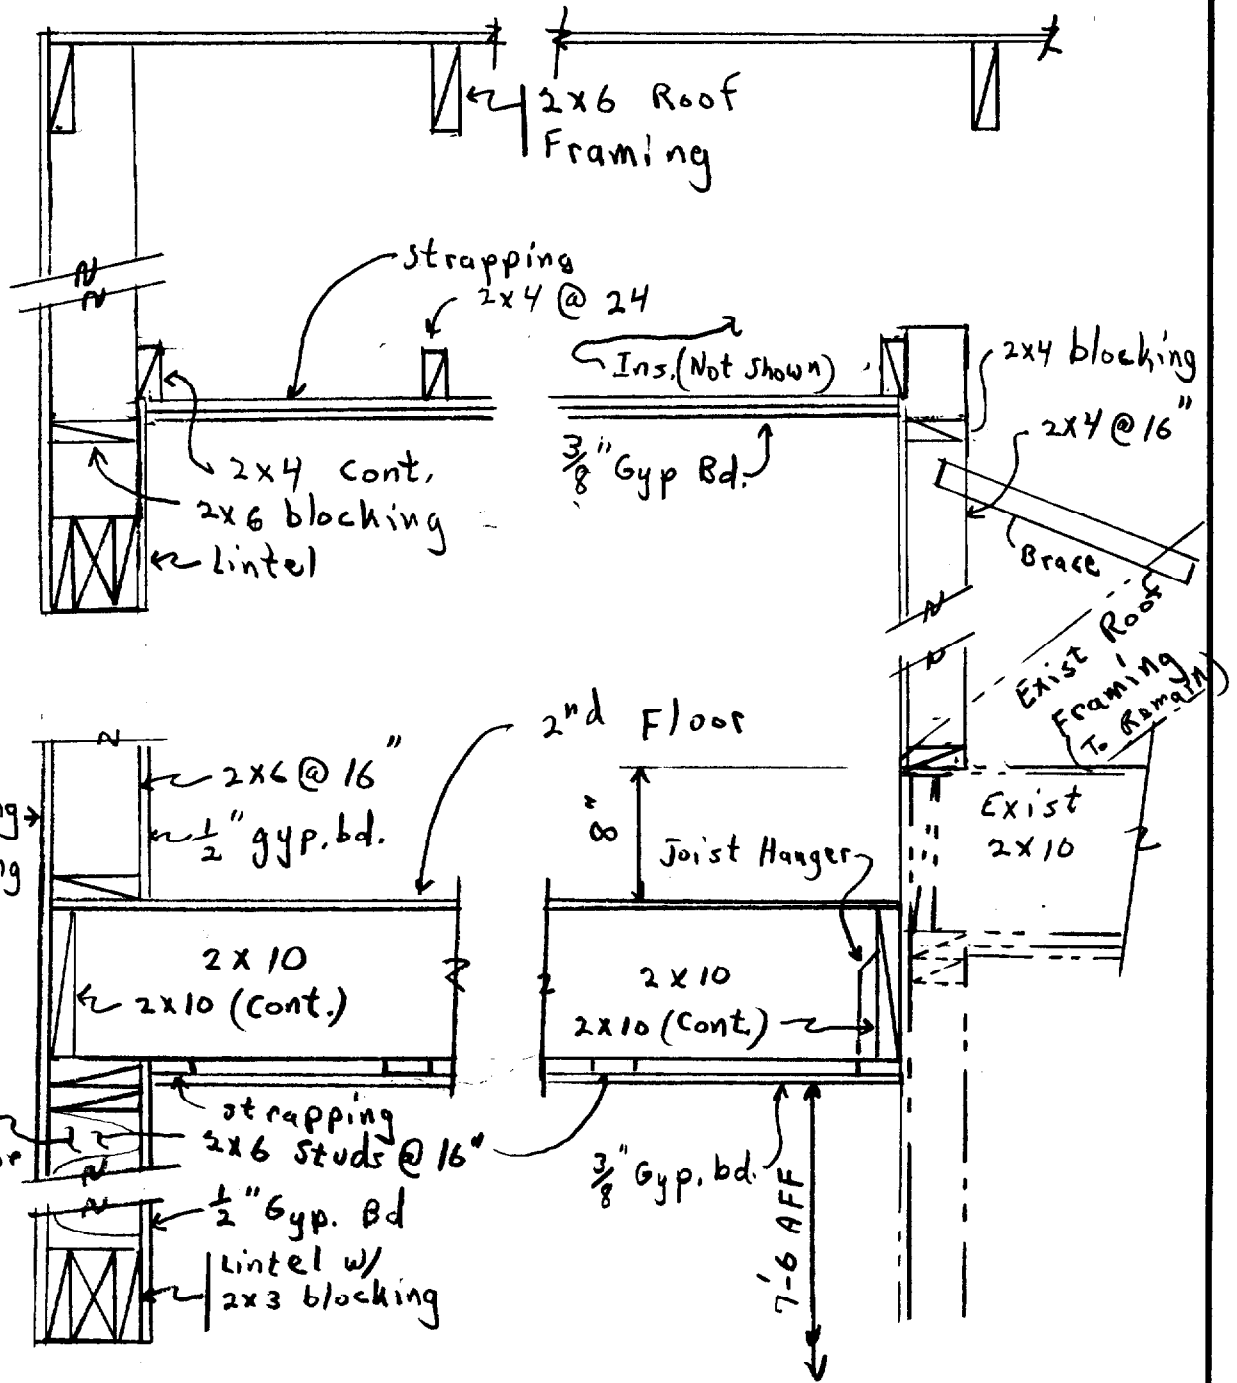 2x6 Roof
Framing
strapping
2x4 @ 24
Ins. (Not Shown)
2x4 blocking
2x4 @ 16"
3/8" Gyp Bd.
2x4 cont.
2x6 blocking
Lintel
Brace
Exist Roof
Framing
To Remain
2nd Floor
2x6 @ 16"
1/2" gyp. bd.
8"
Joist Hanger
Exist
2x10
2x10
2x10 (Cont.)
2x10
2x10 (Cont.)
strapping
2x6 Studs @ 16"
3/8" Gyp. bd.
7'-6 AFF
1/2" Gyp. Bd
Lintel w/
2x3 blocking